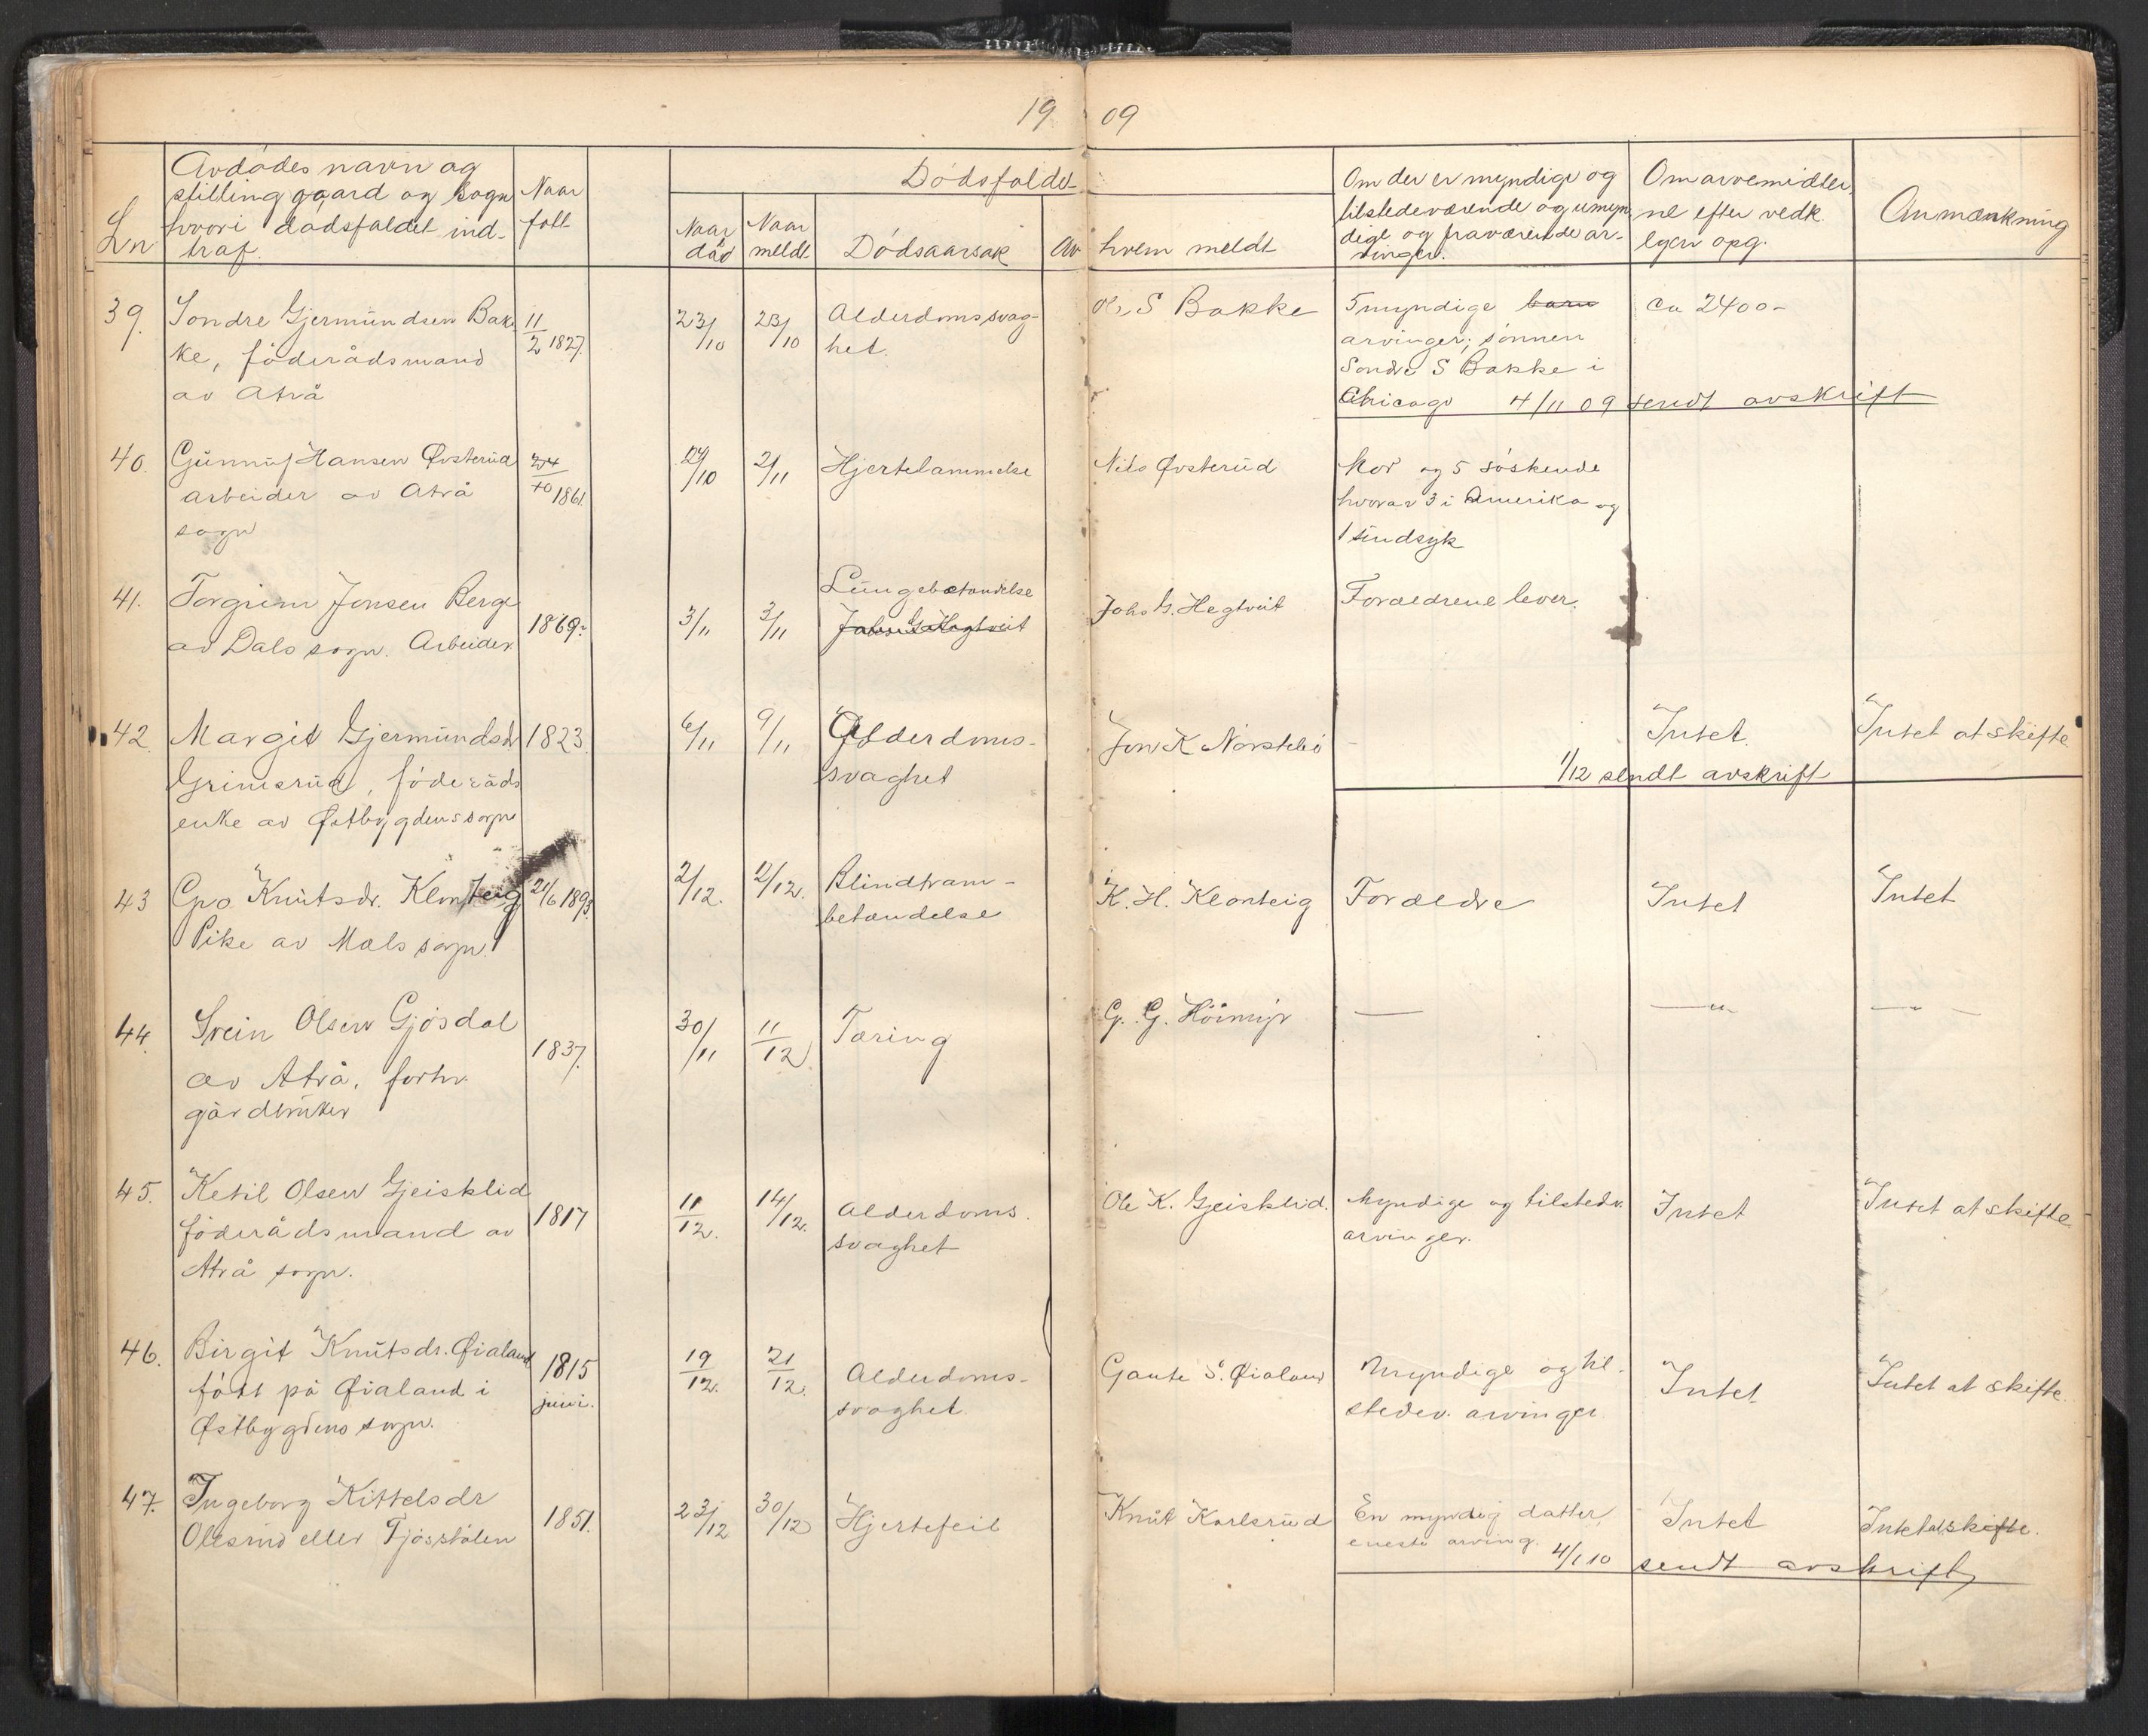 1909
Avdödes navn og
stilling gaard og sogn
hvori dødsfaldet ind-
traf.
Ln
Naar
født
Dödsfaldet
Naar
død
Naar
meldt
Dödsaarsak
Av hvem meldt
Om der er myndige og
tilstedeværende og umyn
dige og fraværende ar-
vinger.
Om arvemidler
ne efter vedk.
lyen opg.
Anmærkning
39. Sondre Gjermundsen Bak
ke, föderådsmand
av Atrå
11/2 1827.
23/10
23/10
Alderdomssvag-
het.
Ol. S Bakke
5 myndige barn
arvinger; sönnen
Sondre S Bakke i
Chicago 4/11 09 sendt avskrift
ca 2400-
40. Gunnuf Hansen Øvsterud
arbeider av Atrå
sogn
24/10 1861.
29/10
2/11
Hjertelammelse
Nils Øvsterud
Mor og 5 söskende
hvorav 3 i Amerika og
1 sindsyk
41. Torgrim Jonsen Berge
av Dals sogn. Arbeider.
1869.
3/11
3/11
Lungebetændelse
Johs G. Hegtveit
Johs G. Hegtveit
Forældrene lever.
42. Margit Gjermundsdr
Grimsrud, föderåds
enke av Østbygdens sogn
1823.
6/11
9/11
Alderdoms-
svaghet
Jon K Norstebö
Intet.
Intet at skifte
1/12 sendt avskrift
43 Gro Knutsdr. Klonteig
Pike av Mæls sogn.
21/6 1893
2/12.
12/12.
Blindtarm-
betændelse
K. H. Klonteig
Forældre
Intet
Intet
44. Svein Olsen Gjösdal
av Atrå. forhv.
gårdbruker
1837.
30/11
11/12
Tæring
G. G. Höimyr
—
—"—
—"—
45. Ketil Olsen Gjeisklid
föderådsmand av
Atrå sogn.
1817
11/12.
14/12.
Alderdoms.
svaghet
Ole K. Gjeisklid.
Myndige og tilstedv.
arvinger.
Intet
Intet at skifte
46. Birgit Knutsdr. Øialand
født på Øialand i
Østbygdens sogn.
1815
juni.
19/12.
21/12.
Alderdoms-
svaghet.
Gaute S. Øialand
Myndige og til-
stedev. arvinger
Intet
Intet at skifte
47. Ingeborg Kittelsdr
Olesrud eller Tjösstölen
1851.
23/12
30/12
Hjertefeil
Knut Karlsrud
En myndig datter
eneste arving.
Intet
Intet at skifte.
4/1 10 sendt avskrift